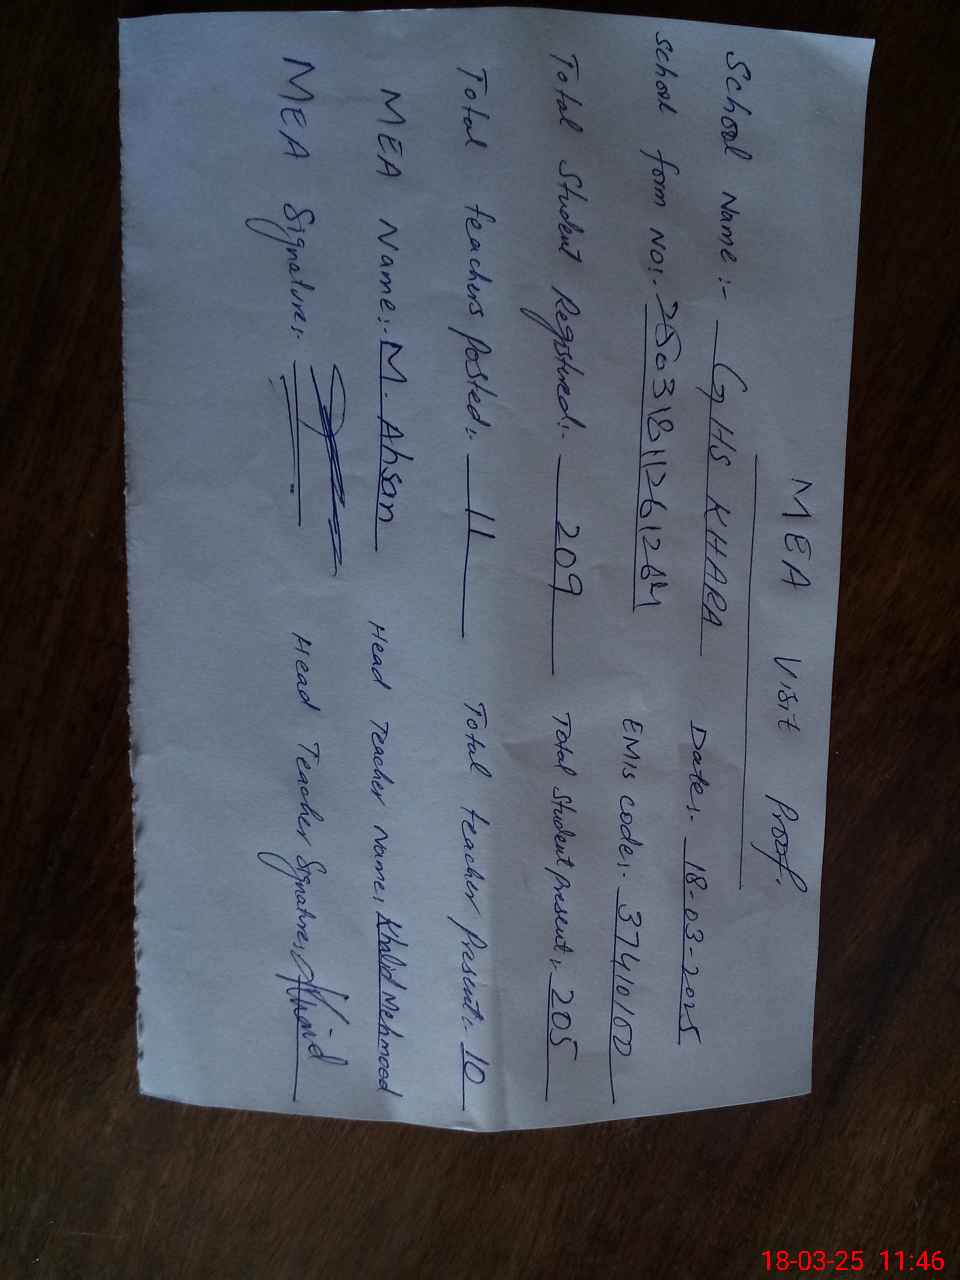 MEA Visit Proof.
School Name :- GHS KHARA Date:- 18-03-2025
School form No:- 250318112612264
EMIS code:- 37410100
Total Student Registered:- 209 Total Student present:- 205
Total teachers posted:- 11 Total teacher Present:- 10
MEA Name:- M. Ahsan Head Teacher Name: Khalid Mehmood
MEA Signature:- Head Teacher Signature: Khalid
18-03-25 11:46